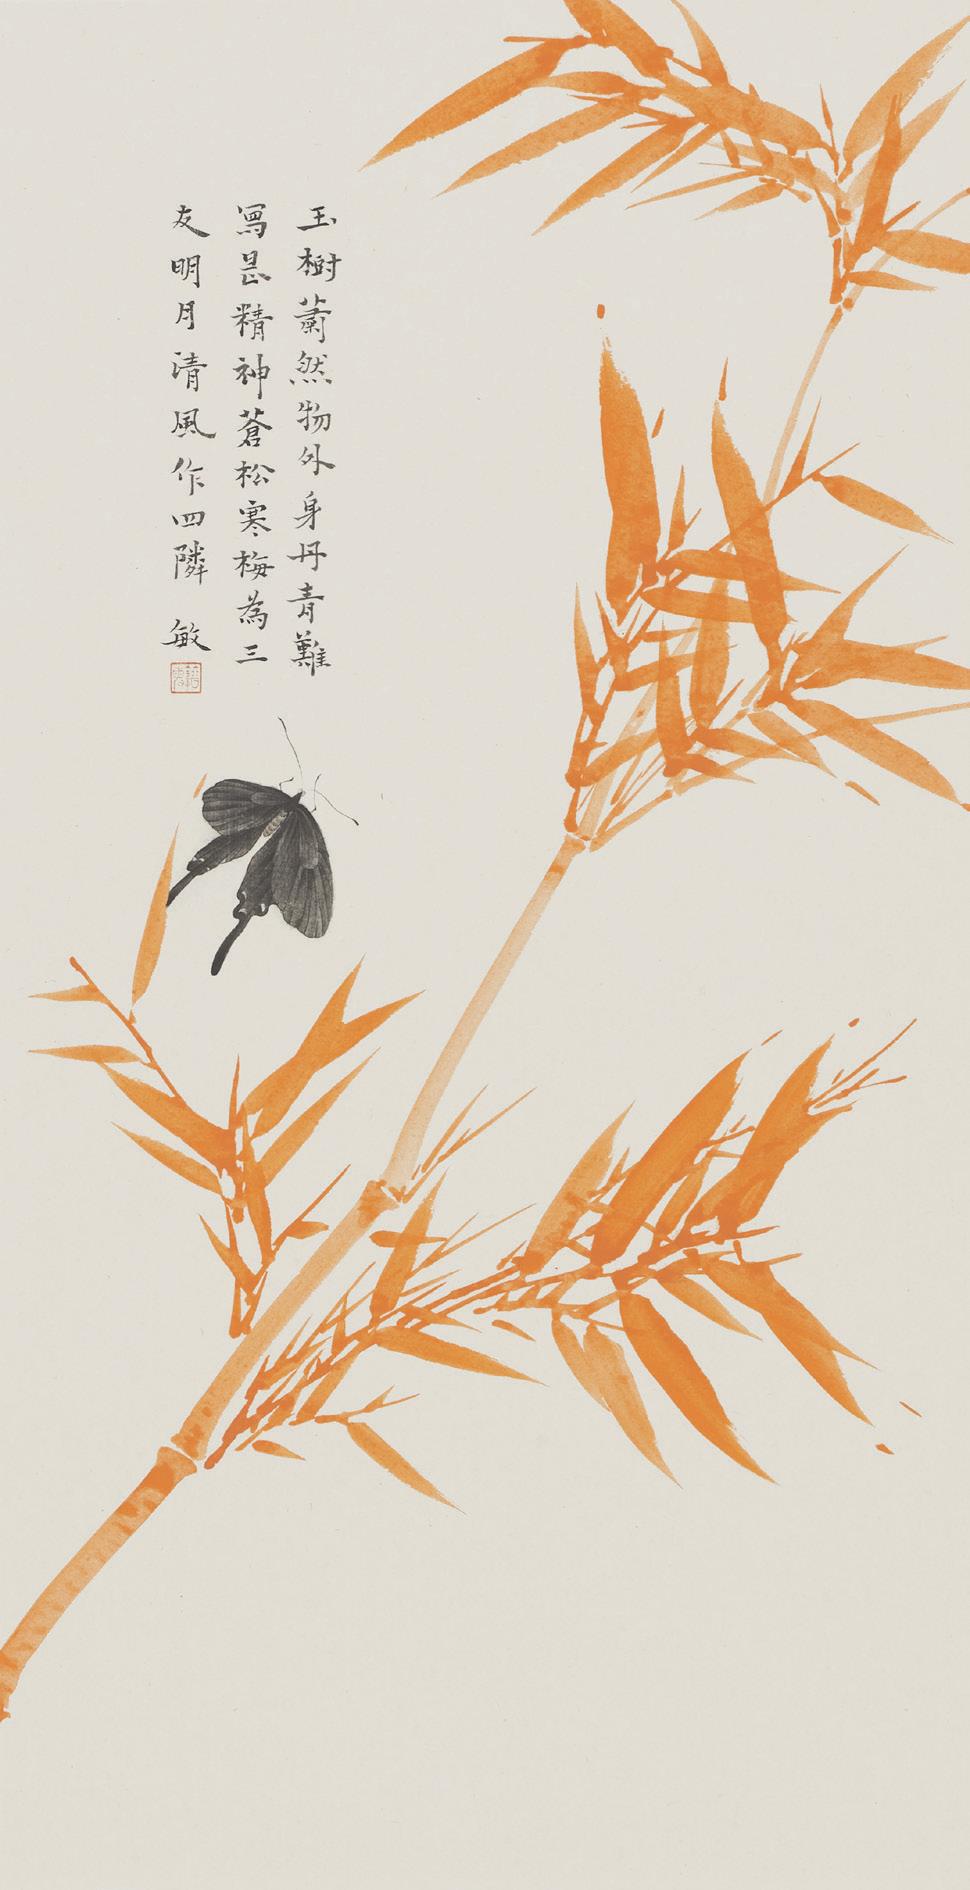 玉樹蕭然物外身丹青難
寫是精神蒼松寒梅為三
友明月清風作四隣 敏